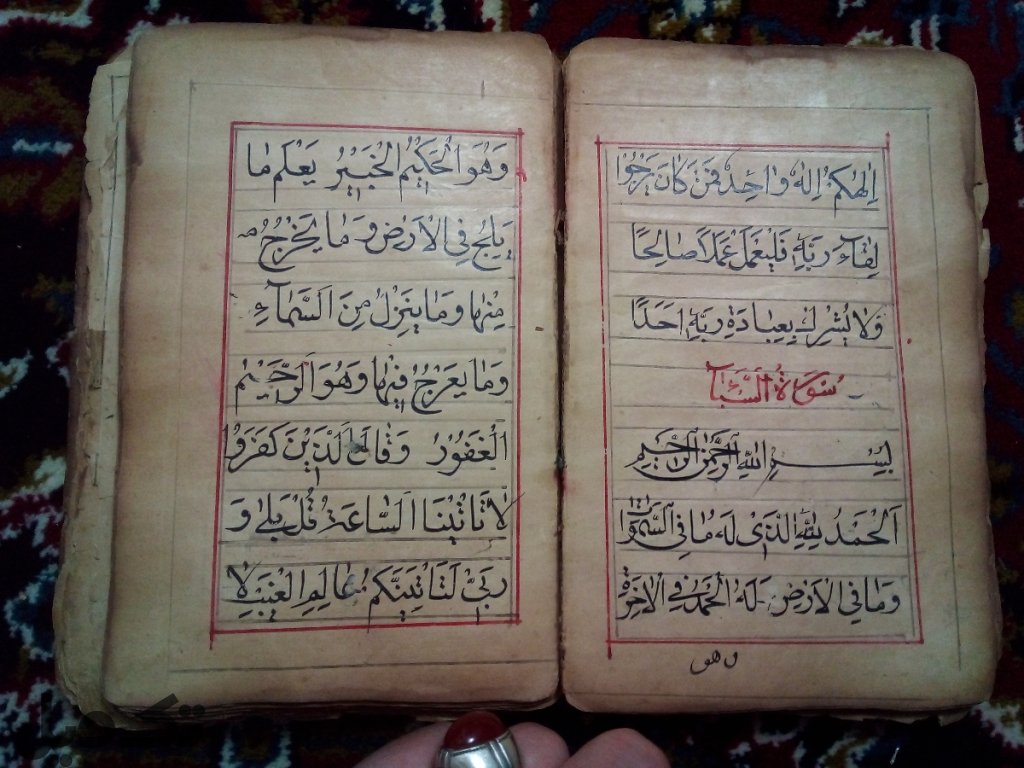 اِلٰهُكُمْ اِلٰهٌ وٰاحِدٌ فَمَنْ كٰانَ يَرْجُوا
لِقٰآءَ رَبِّهِ فَلْيَعْمَلْ عَمَلًا صٰالِحًا
وَلاٰ يُشْرِكْ بِعِبٰادَةِ رَبِّهِ اَحَدًا
سُورَةُ السَّبَأ
بِسْمِ اللهِ الرَّحْمٰنِ الرَّحِيمِ
اَلْحَمْدُ لِلّٰهِ الَّذِى لَهُ مٰا فِى السَّمٰوٰاتِ
وَمٰا فِى الْاَرْضِ وَلَهُ الْحَمْدُ فِى الْاٰخِرَةِ
وهو
وَهُوَ الْحَكِيْمُ الْخَبِيْرُ يَعْلَمُ مٰا
يَلِجُ فِى الْاَرْضِ وَمٰا يَخْرُجُ
مِنْهٰا وَمٰا يَنْزِلُ مِنَ السَّمٰآءِ
وَمٰا يَعْرُجُ فِيْهٰا وَهُوَ الرَّحِيْمُ
الْغَفُوْرُ وَقٰالَ الَّذِيْنَ كَفَرُوا
لاٰ تَاْتِيْنَا السّٰاعَةُ قُلْ بَلٰى وَ
رَبِّىْ لَتَاْتِيَنَّكُمْ عٰالِمِ الْغَيْبِ لاٰ